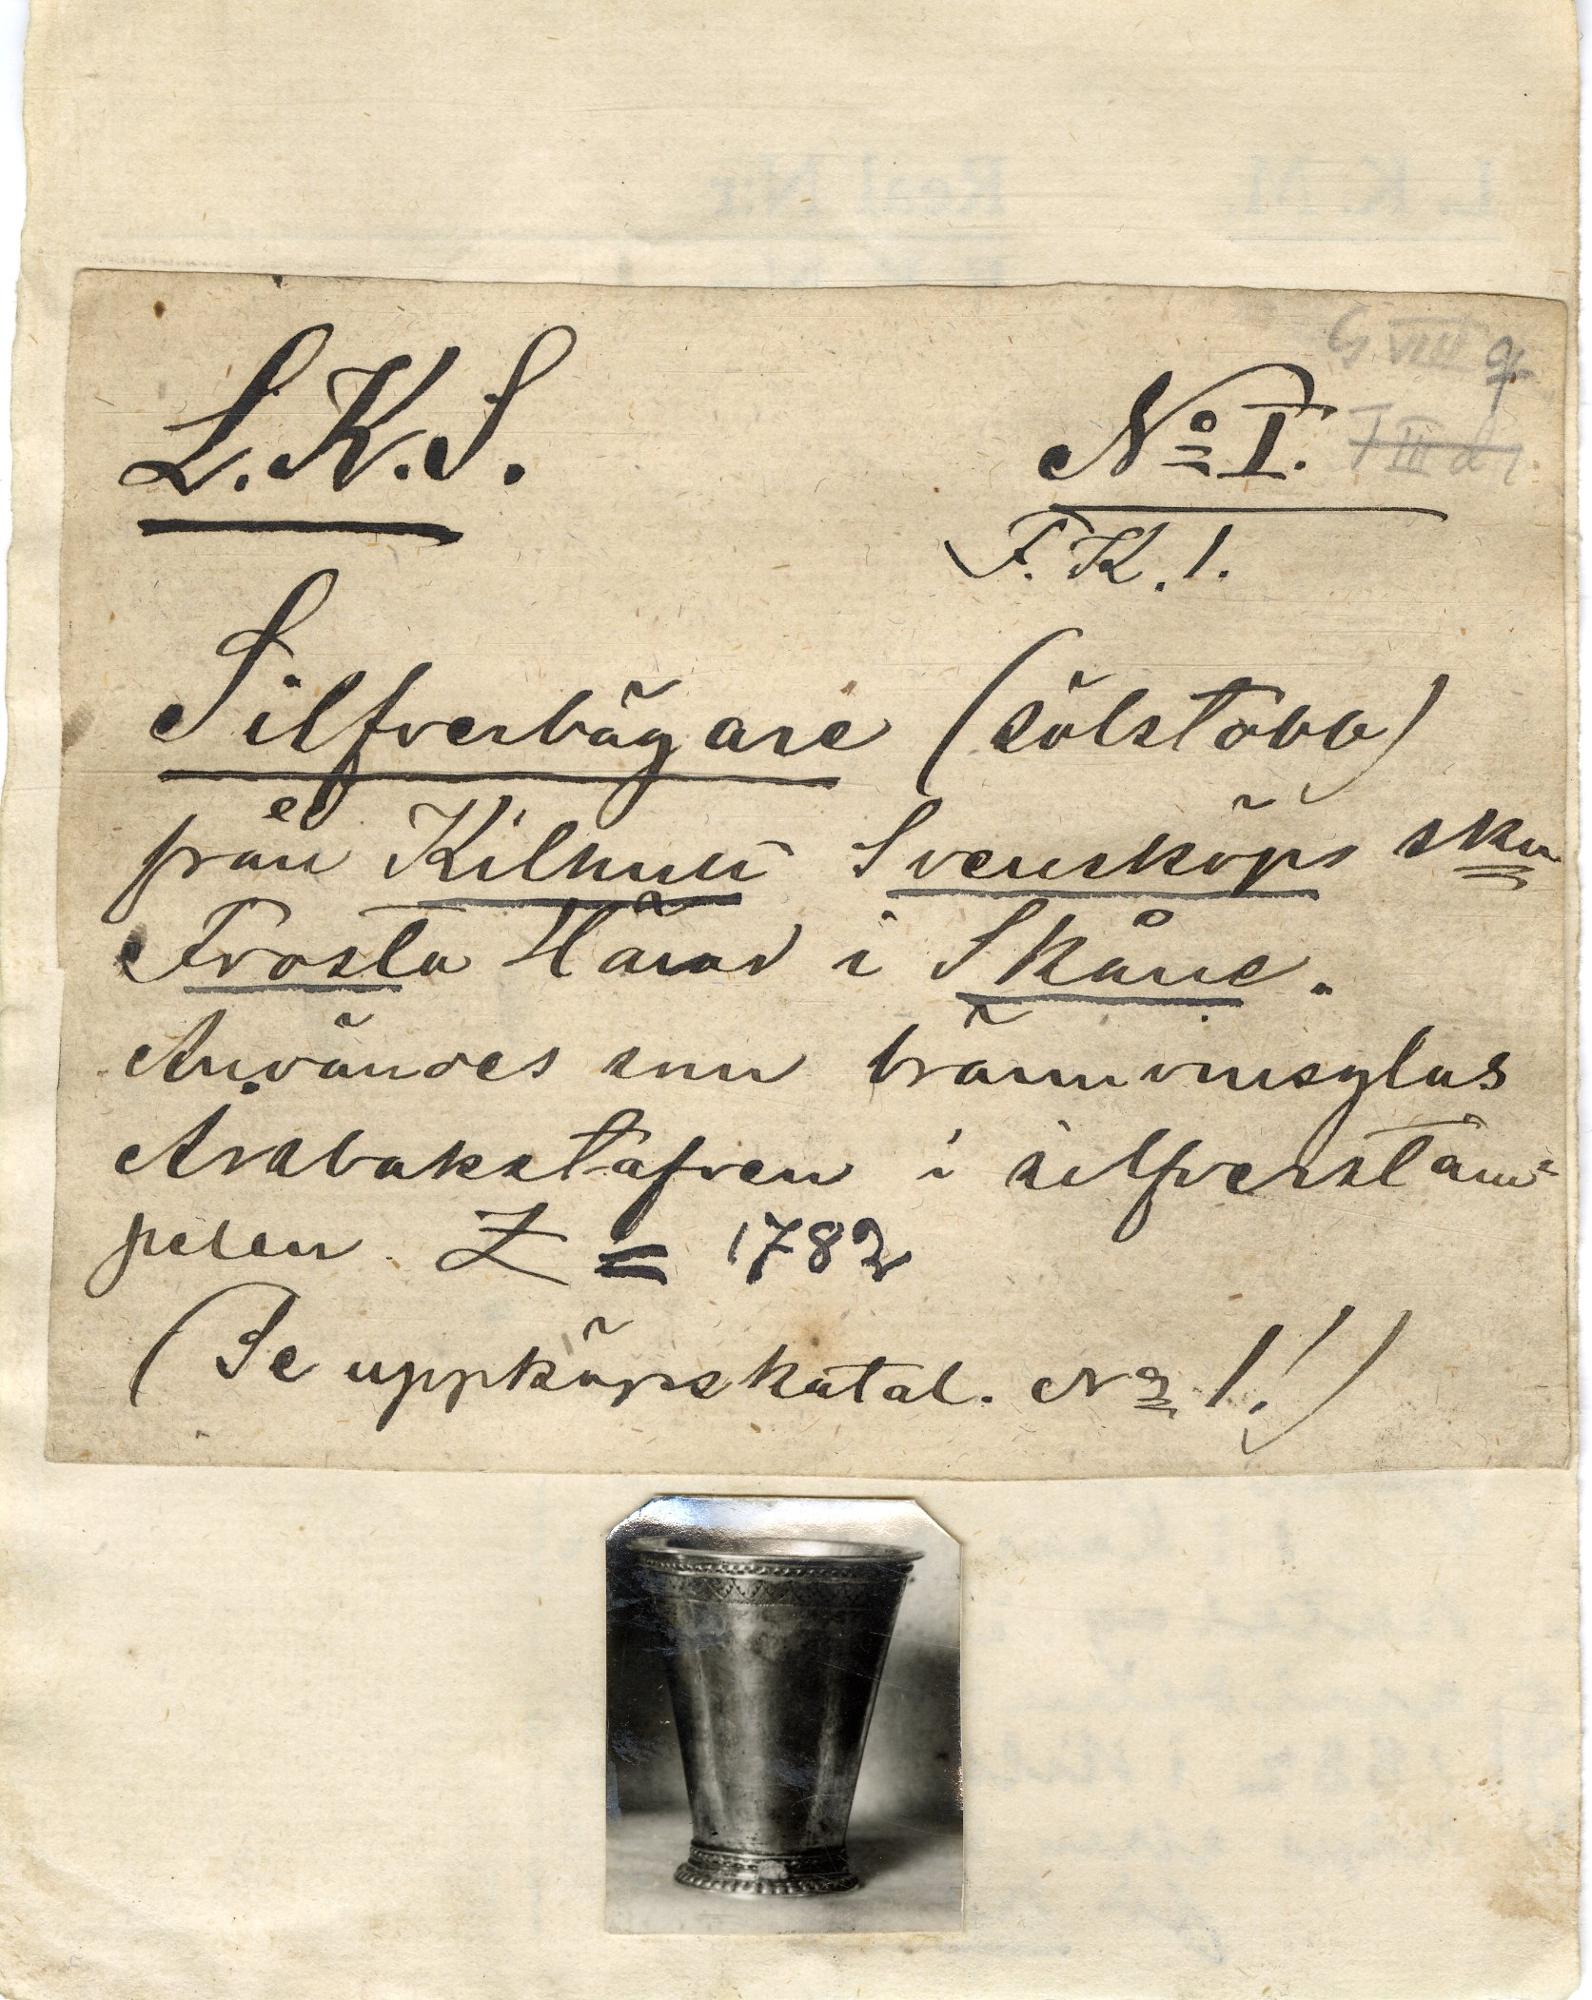 L.K.S. No I.
G VIII q
F III d
F.K.1.
Silfverbägare (sölstobb)
från Kilhult Svensköps skn
Frosta Härad i Skåne.
Användes som brännvinsglas
Årsbokstafven i silfverstäm=
pelen Z = 1782
(Se uppköpskatal. No 1!)